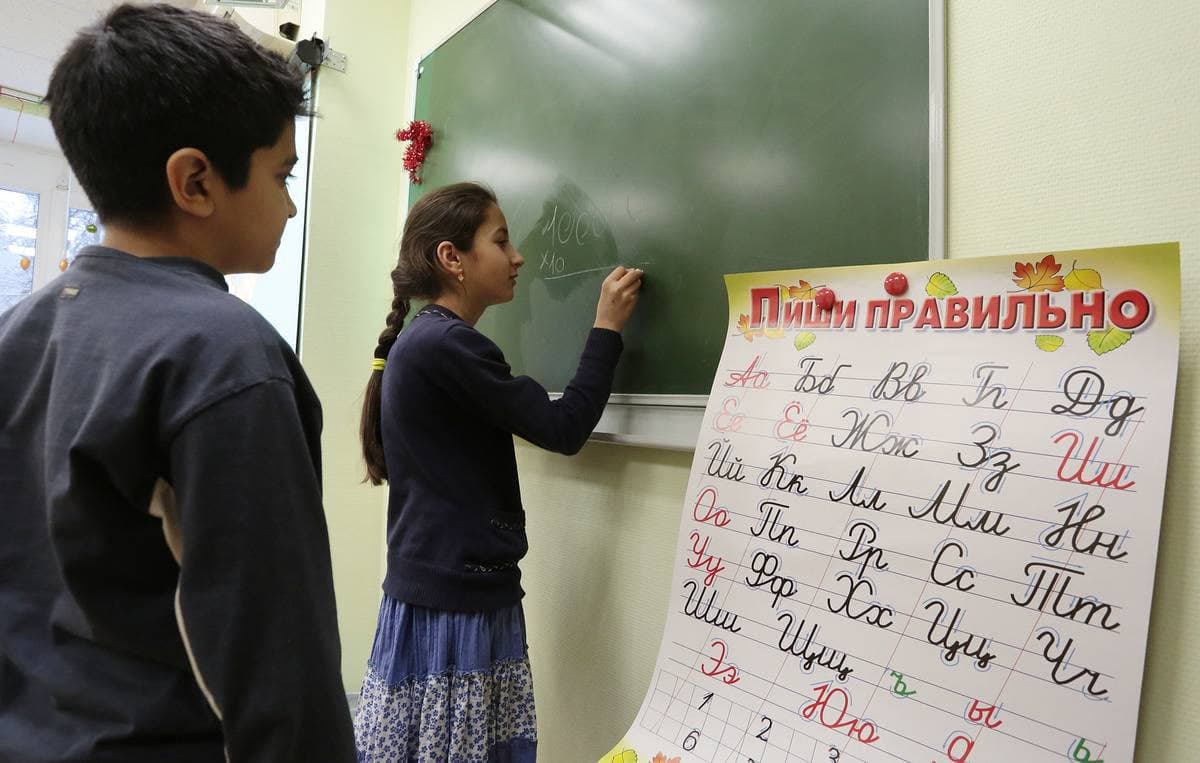 1000
×10
Пиши правильно
Аа Бб Вв Гг Дд
Ее Ёё Жж Зз Ии
Йй Кк Лл Мм Нн
Оо Пп Рр Сс Тт
Уу Фф Хх Цц Чч
Шш Щщ ъ ы ь
Ээ Юю
1 2 3
6